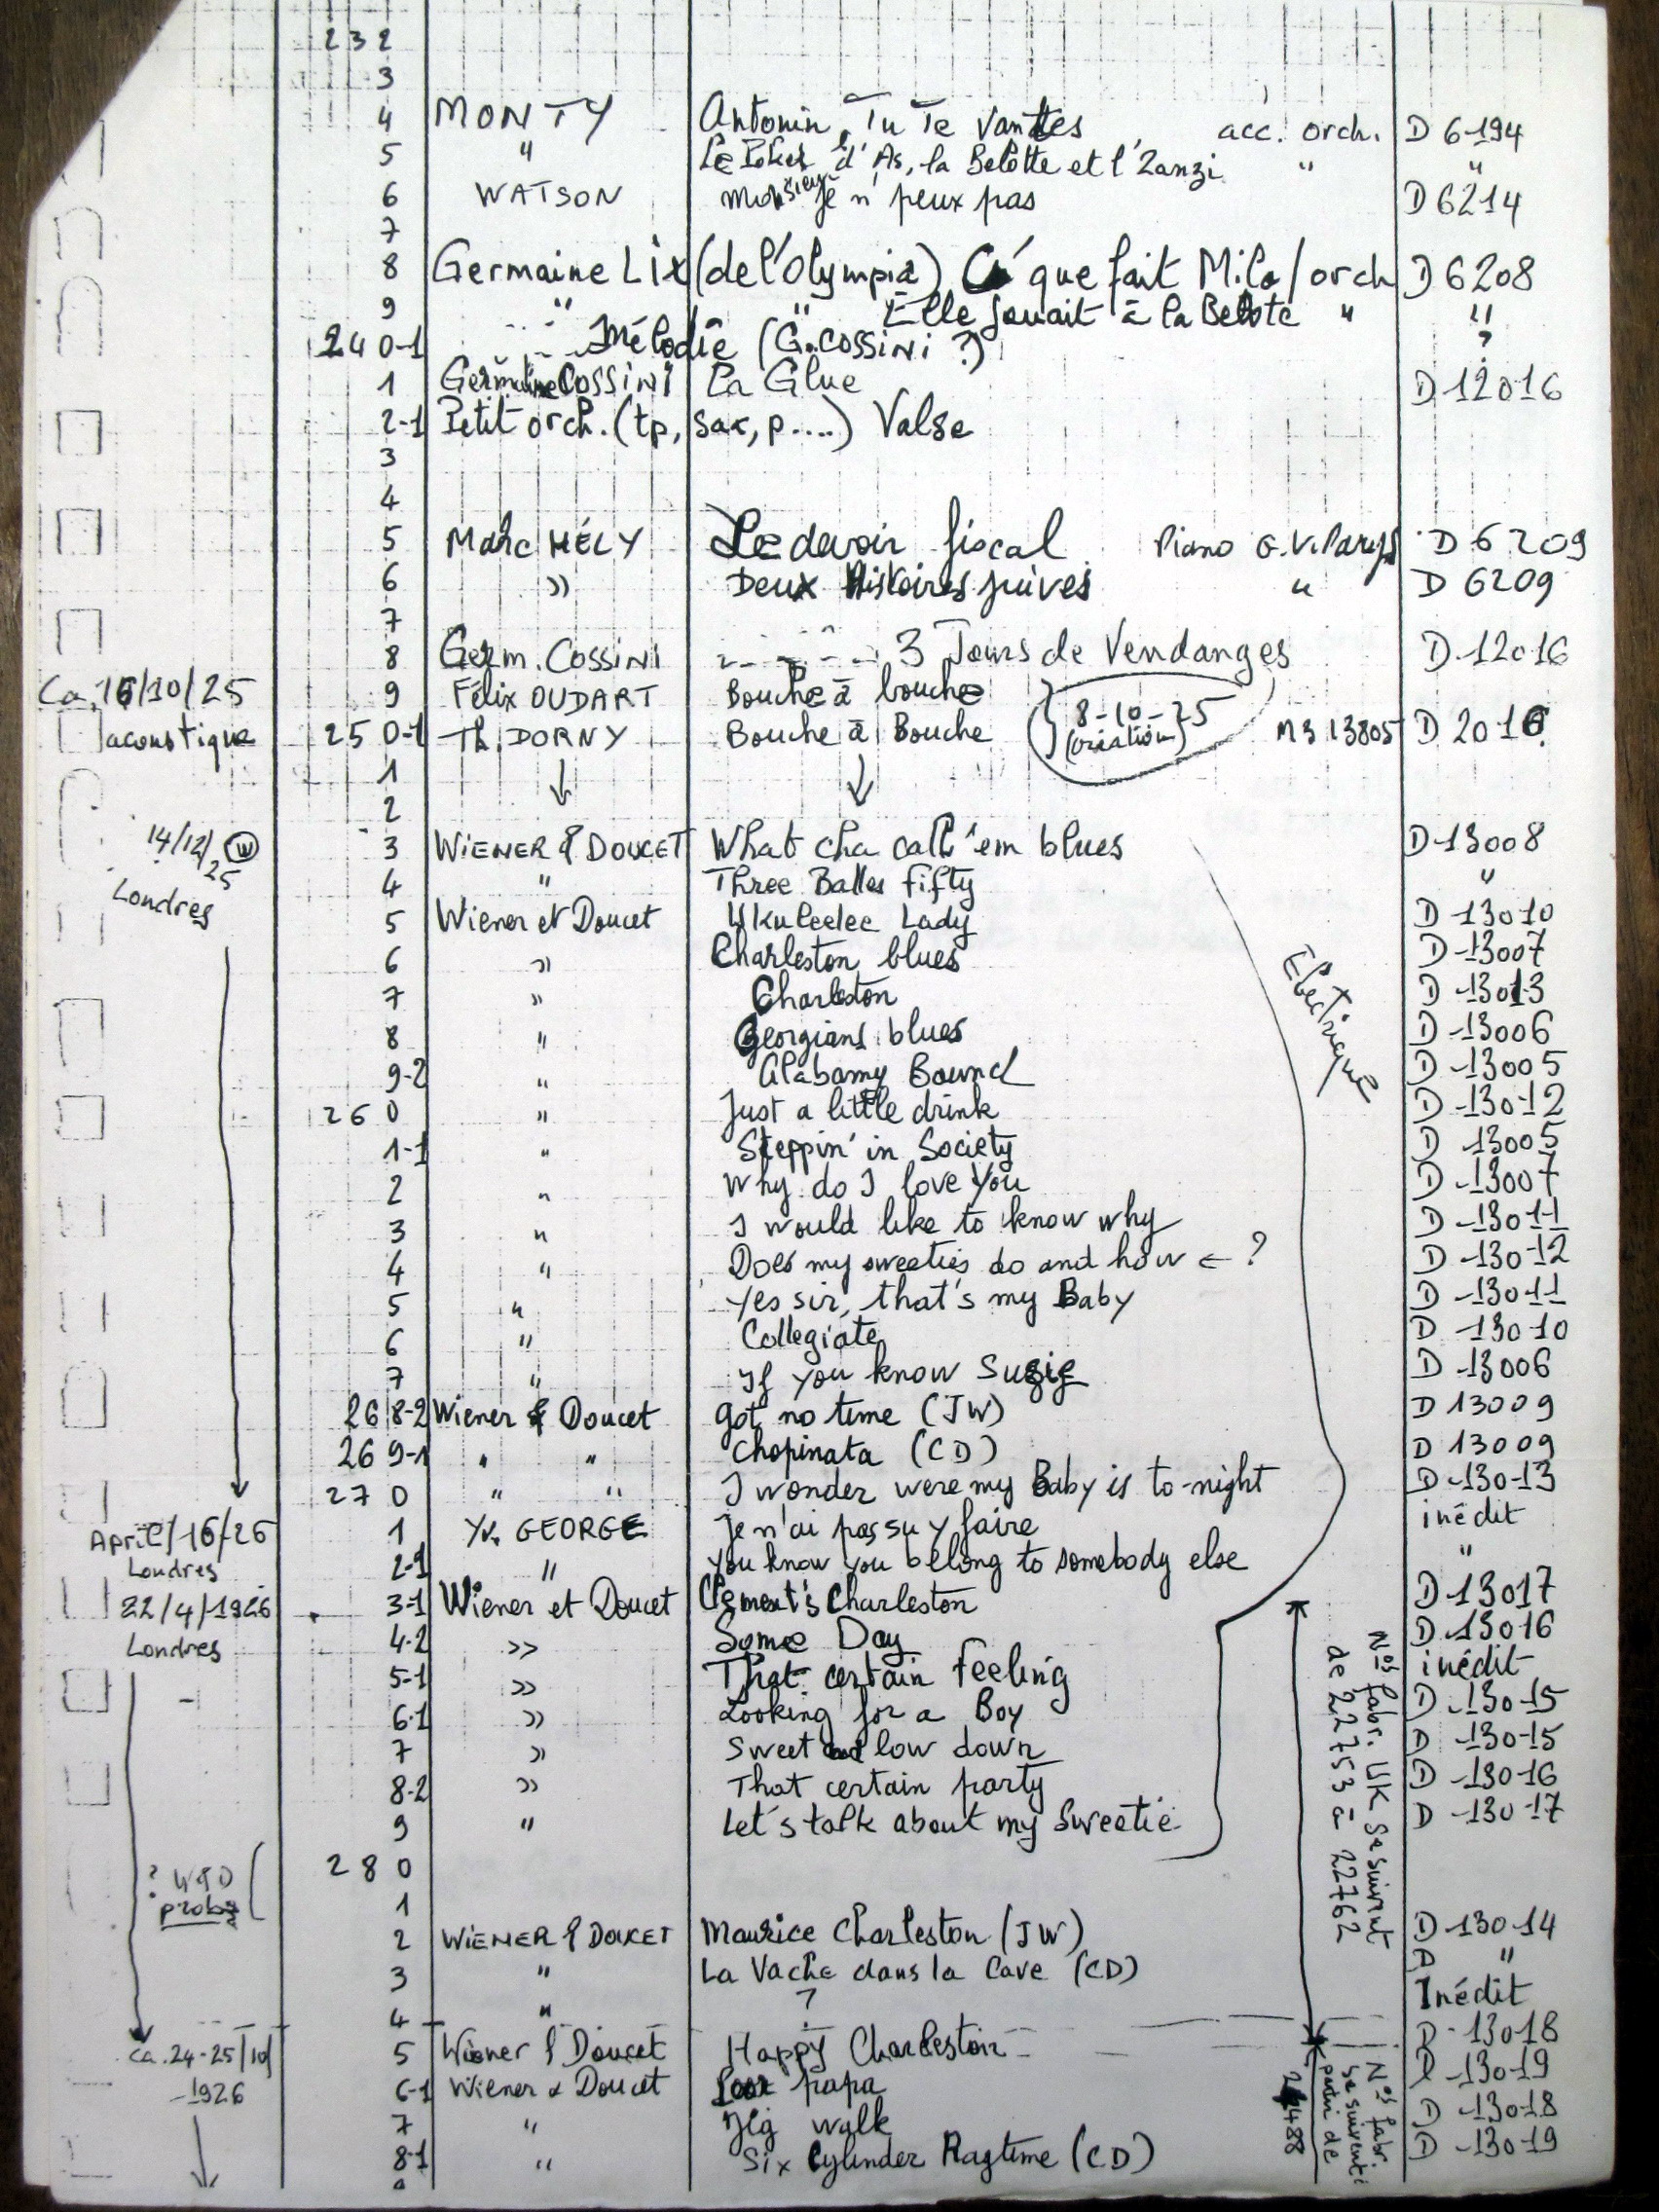 232
3
4 MONTY Antonin, Tu Te vantes acc. orch. D 6194
5 " Le Poker d'As, la Belotte et l'Zanzi " "
6 WATSON Monsieur Je n'peux pas D 6214
7
8 Germaine Lix (de l'Olympia) C'que fait Milo/orch D 6208
9 " " Elle jouait à la Belote " "
240-1 Mélodie (G. COSSINI ?) ?
1 Germaine COSSINI La Glue D 12016
2-1 Petit orch. (tp, sax, p....) Valse
3
4
5 Marc HÉLY Le devoir fiscal Piano G.V.Parys D 6209
6 » Deux Histoires juives " D 6209
7
8 Germ. COSSINI 3 Jours de Vendanges D.12016
Ca. 16/10/25 9 Félix OUDART Bouche à bouche
acoustique 250-1 Th. DORNY Bouche à Bouche 8-10-25 (création) M3 13805 D 2016
1
2
14/12/25 (W) 3 WIENER & DOUCET What cha call 'em blues D 13008
Londres 4 " Three Balles fifty "
5 Wiener et Doucet Ukuleelee Lady D 13010
6 » Charleston blues D 13007
7 » Charleston D 13013
Electrique
8 " Georgians blues D 13006
9-2 " Alabamy Bound D 13005
260 " Just a little drink D 13012
1-1 " Steppin' in Society D 13005
2 " Why do I love You D 13007
3 " I would like to know why D 13011
4 " Does my sweeties do and how ← ? D 13012
5 " Yes sir, that's my Baby D 13011
6 " Collegiate D 13010
7 " If you know Suzie D 13006
268-2 Wiener & Doucet Got no time (JW) D 13009
269-1 " " Chopinata (CD) D 13009
270 " " I wonder were my Baby is to-night D 13013
April/16/26 1 Yv. GEORGE Je n'ai pas su y faire inédit
Londres 2-1 " You know you belong to somebody else "
22/4/1926 3-1 Wiener et Doucet Clement's Charleston D 13017
Londres 4-2 » Some Day D 13016
5-1 » That certain feeling inédit
6-1 » Looking for a Boy D 13015
7 » Sweet and low down D 13015
8-2 » That certain party D 13016
9 " Let's talk about my Sweetie D 13017
Nos fabr. UK se suivent
de 22753 à 22762
280
? W&D
probt
1
2 WIENER & DOUCET Maurice Charleston (JW) D 13014
3 " La Vache dans la Cave (CD) D "
4 " ? Inédit
ca. 24-25/10/ 5 Wiener & Doucet Happy Charleston D 13018
1926 6-1 Wiener & Doucet papa D 13019
7 " Jig walk D 13018
8-1 " Six Cylinder Ragtime (CD) D 13019
Nos fabr.
se suivent
partir de